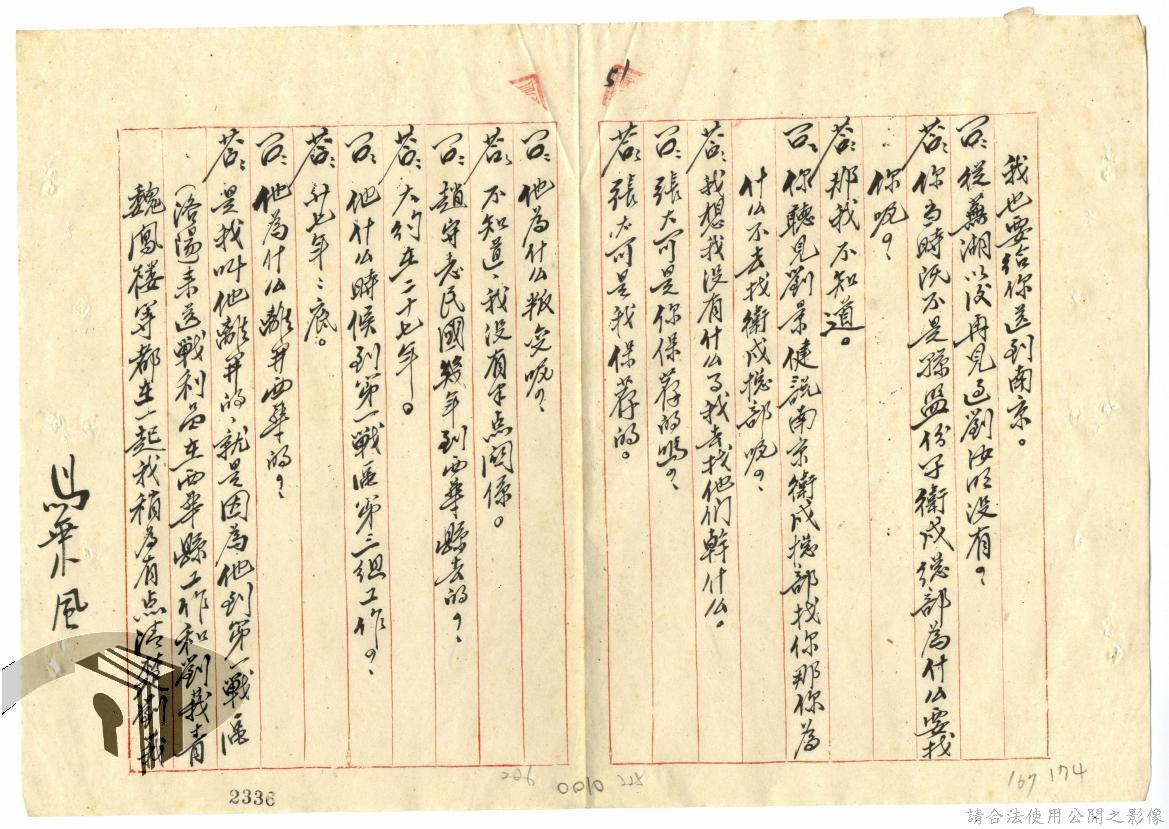 51
我也要給你送到南京。
问：從蕪湖以後再見过劉汝明没有？
答：你当時既不是縣盟份子衛戍總部為什么要找
你呢？
答：那我不知道。
问：你聽見劉景健説南京衛戍總部找你那你為
什么不去找衛戍總部呢？
答：我想我没有什么了我去找他们幹什么。
问：張大可是你保荐的嗎？
答：張大可是我保荐的。
问：他為什么叛变呢？
答：不知道，我没有半点関係。
问：趙守志民國幾年到西華縣去的？
答：大約在二十七年。
问：他什么時候到第一戰區第三组工作？
答：廿七年年底。
问：他為什么離開西華的？
答：是我叫他離开的，就是因為他到第一戰區
(洛陽)来送戰利品在西華縣工作和劉莪青
魏鳳楼等都在一起我稍為有点清楚劉莪
馬乘风
2336
206 0010 225
167 174
請合法使用公開之影像